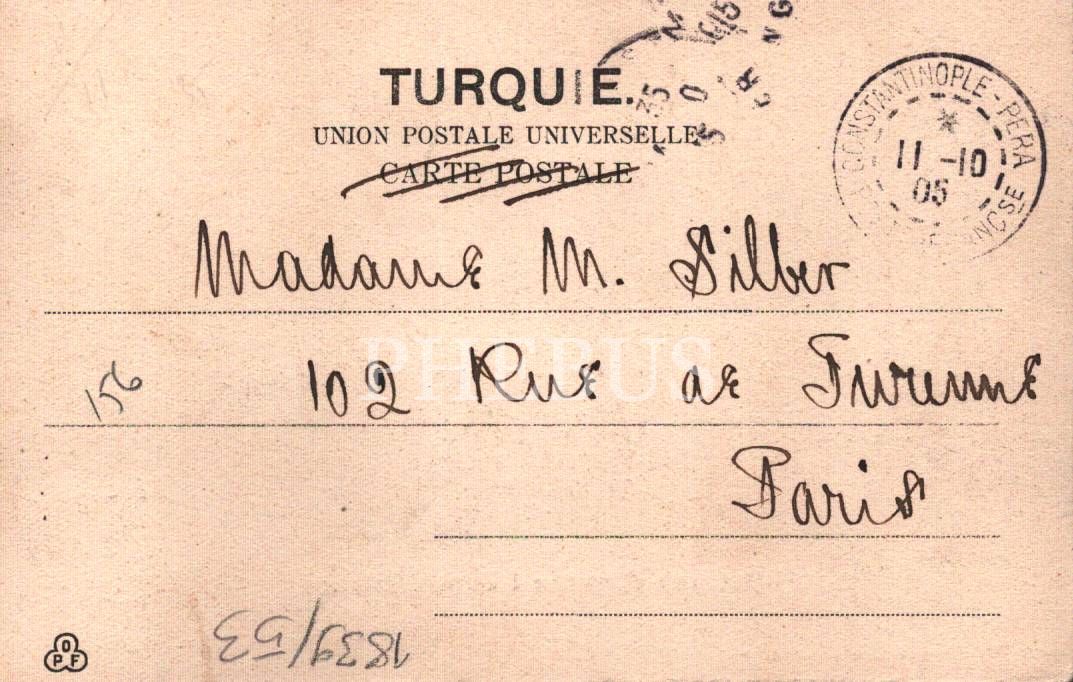 TURQUIE.
UNION POSTALE UNIVERSELLE
CARTE POSTALE
CONSTANTINOPLE - PERA
11 -10
05
Madame M. Silber
102 Rue de Turenne
Paris
156
PHEBUS
1839/53
OPF